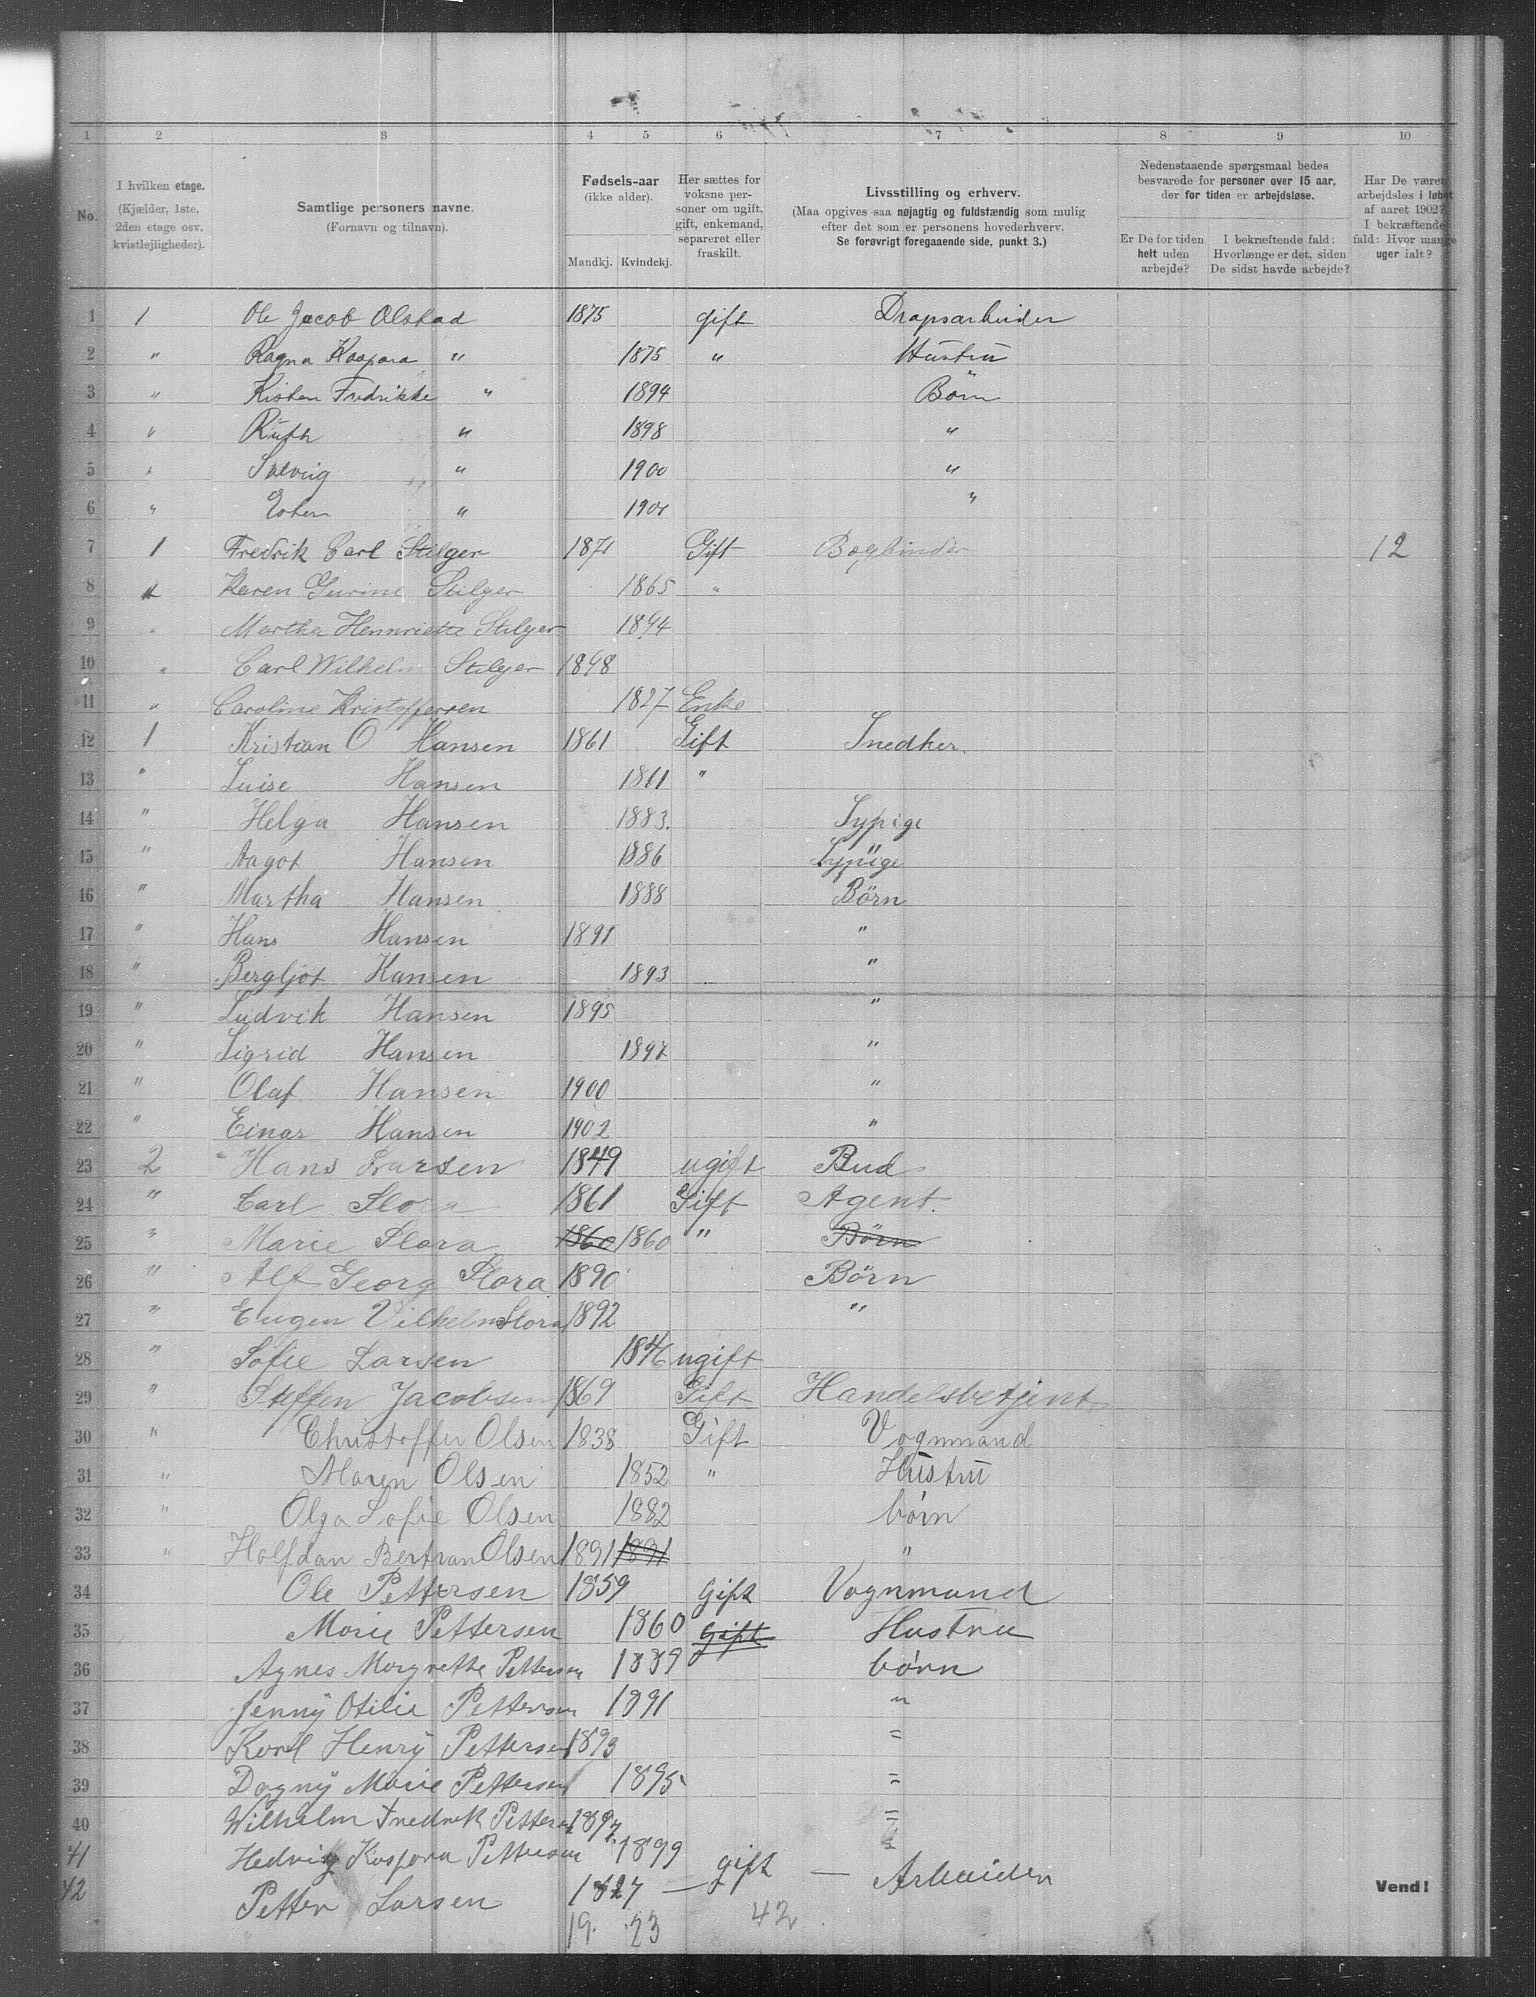 1 2 3 4 5 6 7 8 9 10
No.
I hvilken etage. (Kjælder, 1ste, 2den etage osv. kvistlejligheder).
Samtlige personers navne. (Fornavn og tilnavn).
Fødsels-aar (ikke alder). Mandkj. Kvindekj.
Her sættes for voksne personer om ugift, gift, enkemand, separeret eller fraskilt.
Livsstilling og erhverv. (Maa opgives saa nøjagtig og fuldstændig som mulig efter det som er personens hovederhverv. Se forøvrigt foregaaende side, punkt 3.)
Nedenstaaende spørgsmaal bedes besvarede for personer over 15 aar, der for tiden er arbejdsløse.
Er De for tiden helt uden arbejde?
I bekræftende fald: Hvorlænge er det, siden De sidst havde arbejde?
Har De været arbejdsløs i løbet af aaret 1902? I bekræftende fald: Hvor mange uger ialt?
1 1 Ole Jacob Olstad 1875 gift
2 " Ragna Kaspara " 1875 " Hustru
3 " Kisten Fredrikke " 1894 Børn
4 " Ruth " 1898 "
5 " Solveig " 1900 "
6 " Esther " 1901 "
7 1 Fredrik Carl Stilger 1871 Gift Bogbinder 12
8 " Karen Gurine Stilger 1865 "
9 " Martha Hennriette Stilger 1894
10 " Carl Wilhelm Stilger 1898
11 " Caroline Kristoffersen 1827 Enke
12 1 Kristian O Hansen 1861 Gift Snedker.
13 " Luise Hansen 1861 "
14 " Helga Hansen 1883. Sypige
15 " Aagot Hansen 1886 Sypige
16 " Martha Hansen 1888 Børn
17 " Hans Hansen 1891 "
18 " Bergljot Hansen 1893 "
19 " Ludvik Hansen 1895 "
20 " Sigrid Hansen 1897 "
21 " Olaf Hansen 1900 "
22 " Einar Hansen 1902 "
23 2 Hans Larsen 1849 ugift Bud
24 " Carl Flora 1861 Gift Agent.
25 " Marie Flora 1860 1860 " Børn
26 " Alf Georg Flora 1890 Børn
27 " Eugen Vilhelm Flora 1892 "
28 " Sofie Larsen 1846 ugift
29 " Steffen Jacobsen 1869 Gift Handelsbetjent
30 " Christoffer Olsen 1838 Gift Vognmand
31 " Maren Olsen 1852 " Hustru
32 " Olga Sofie Olsen 1882 børn
33 " Halfdan Bertran Olsen 1891 1891 "
34 Ole Pettersen 1859 Gift Vognmand
35 Marie Pettersen 1860 Gift Hustru
36 Agnes Margrethe Pettersen 1889 børn
37 Jenny Otilie Pettersen 1891 "
38 Karl Henry Pettersen 1893 "
39 Dagny Marie Pettersen 1895 "
40 Wilhelm Fredrik Pettersen 1897 "
41 Hedvig Kaspara Pettersen 1899 "
42 Petter Larsen 1827 — gift — Arbeider
19. 23 42
Vend!